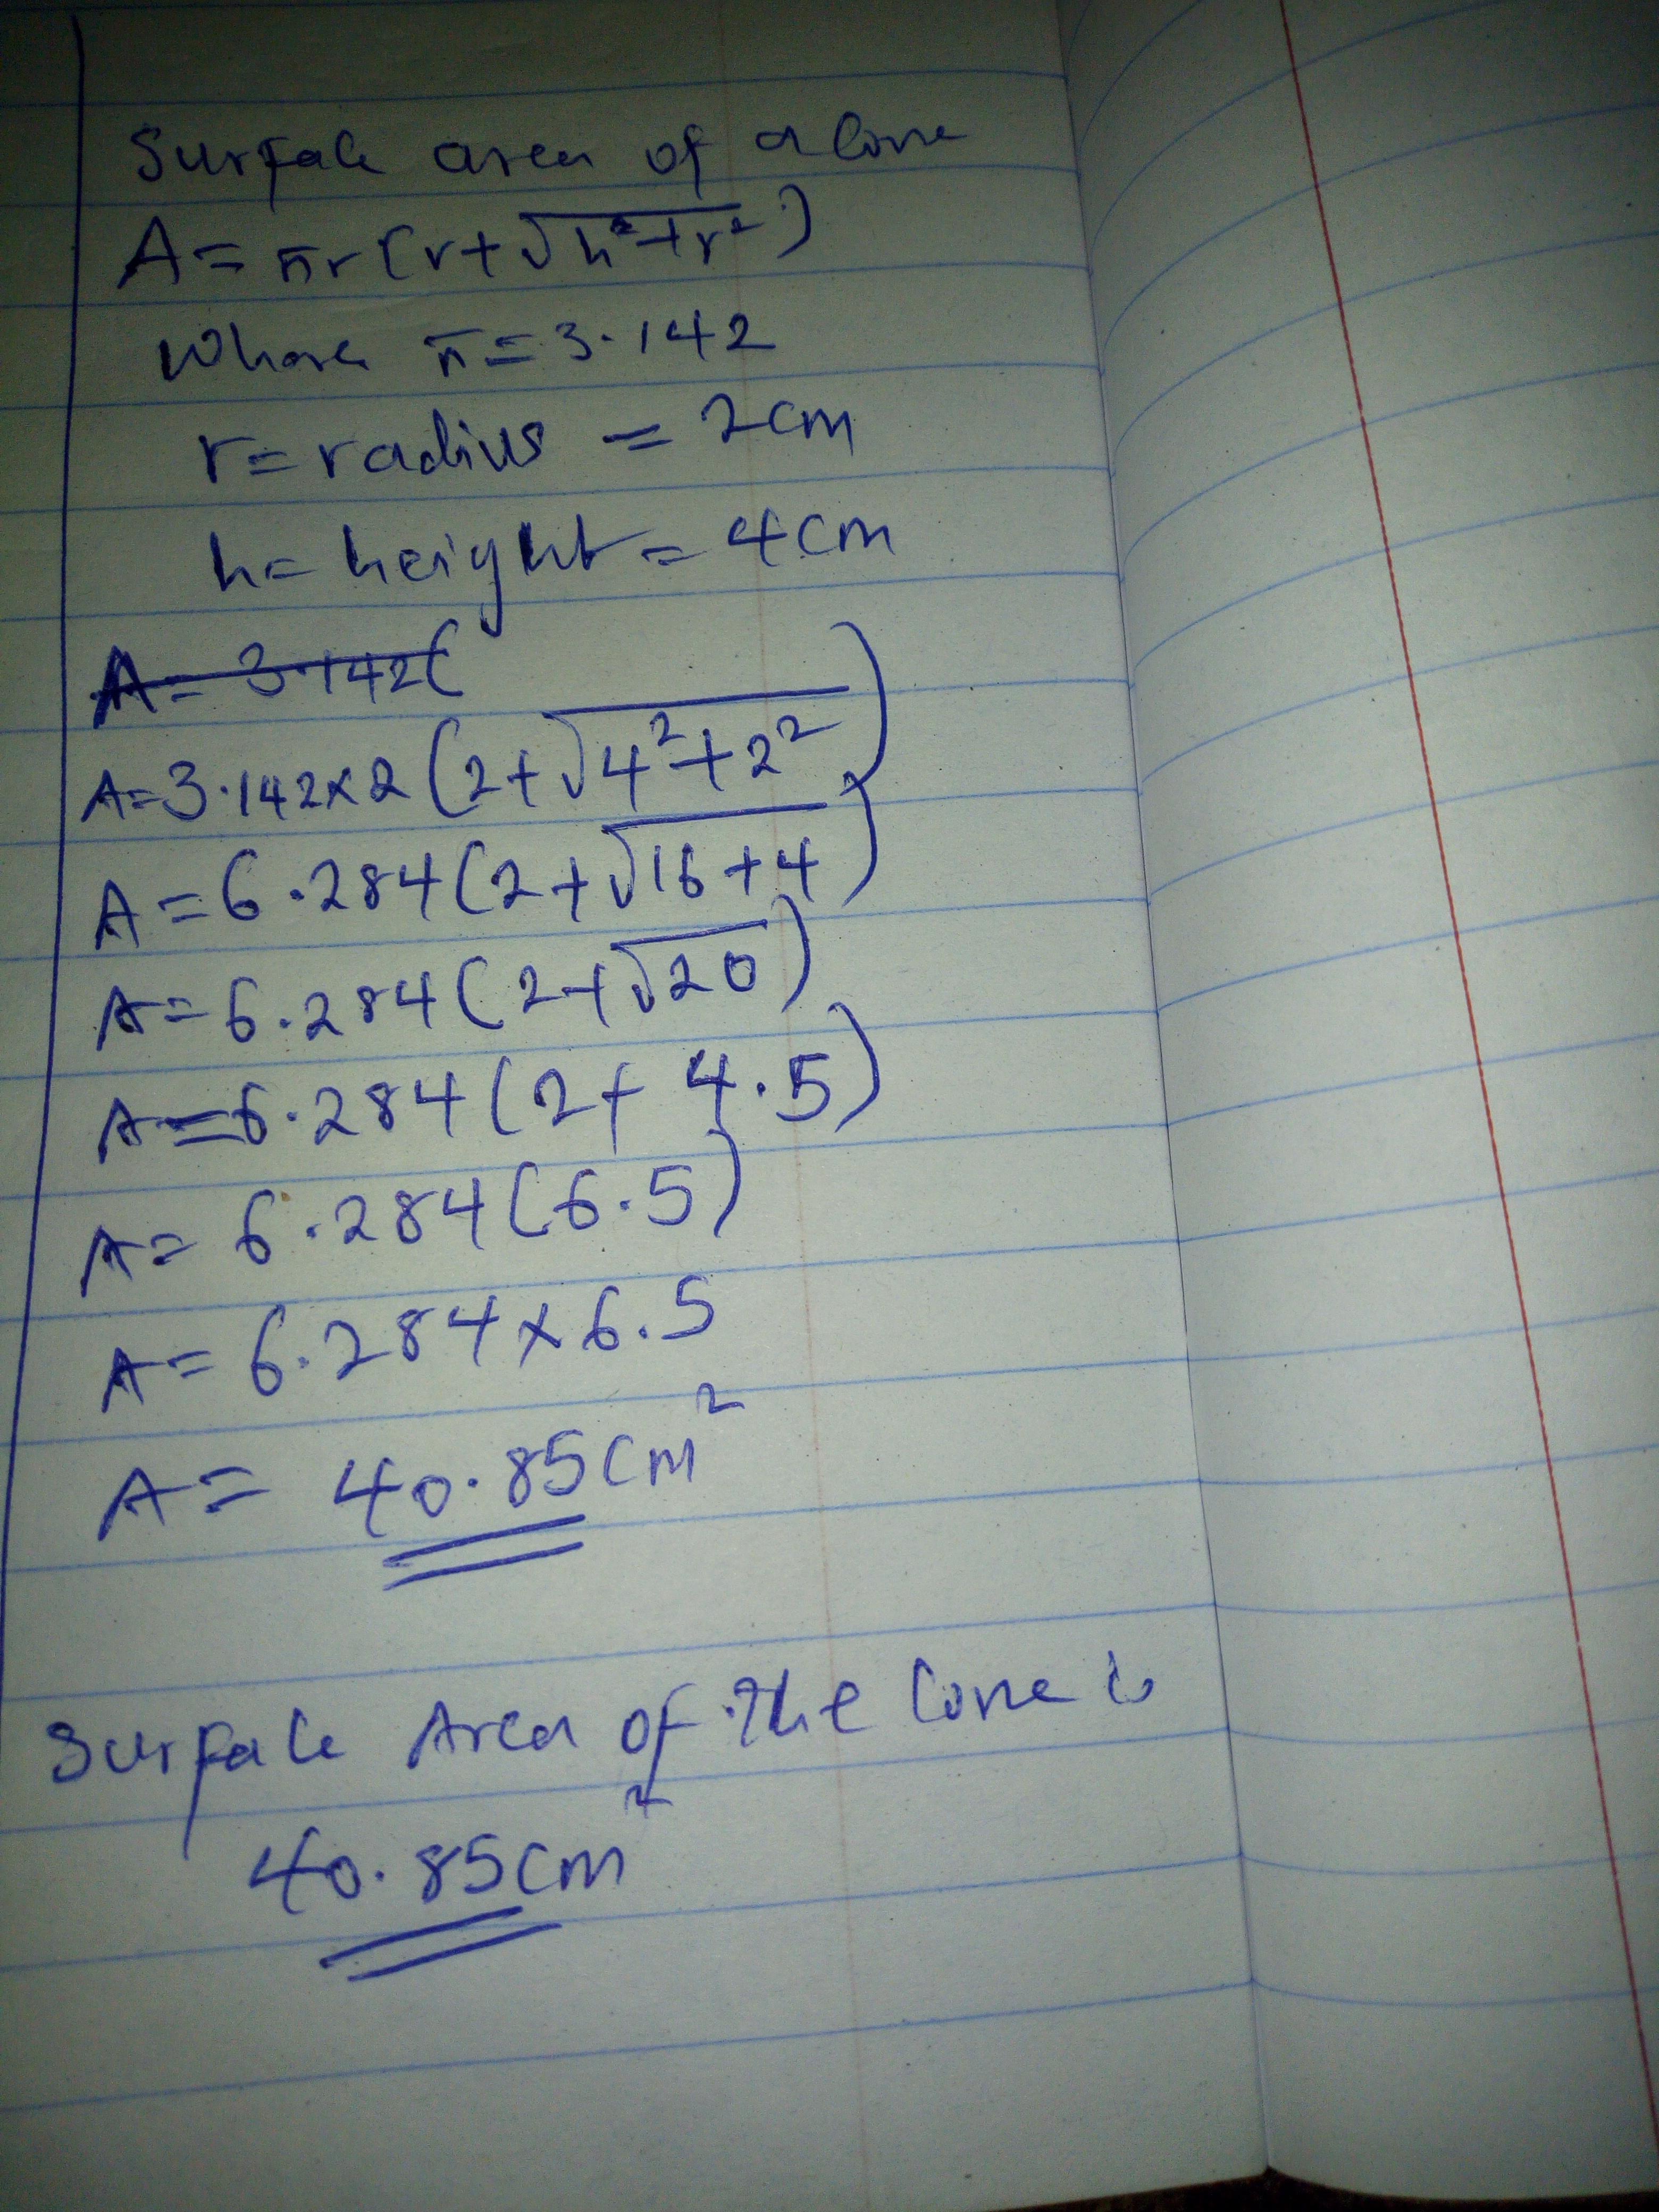 Surface area of a Cone
A = πr(r+√h²+r²)
Where π = 3.142
r = radius = 2cm
h = height = 4cm
A = 3.142(
A = 3.142x2(2+√4²+2²)
A = 6.284(2+√16+4)
A = 6.284(2+√20)
A = 6.284(2+ 4.5)
A = 6.284(6.5)
A = 6.284x6.5
A = 40.85cm²
Surface Area of The Cone is
40.85cm²